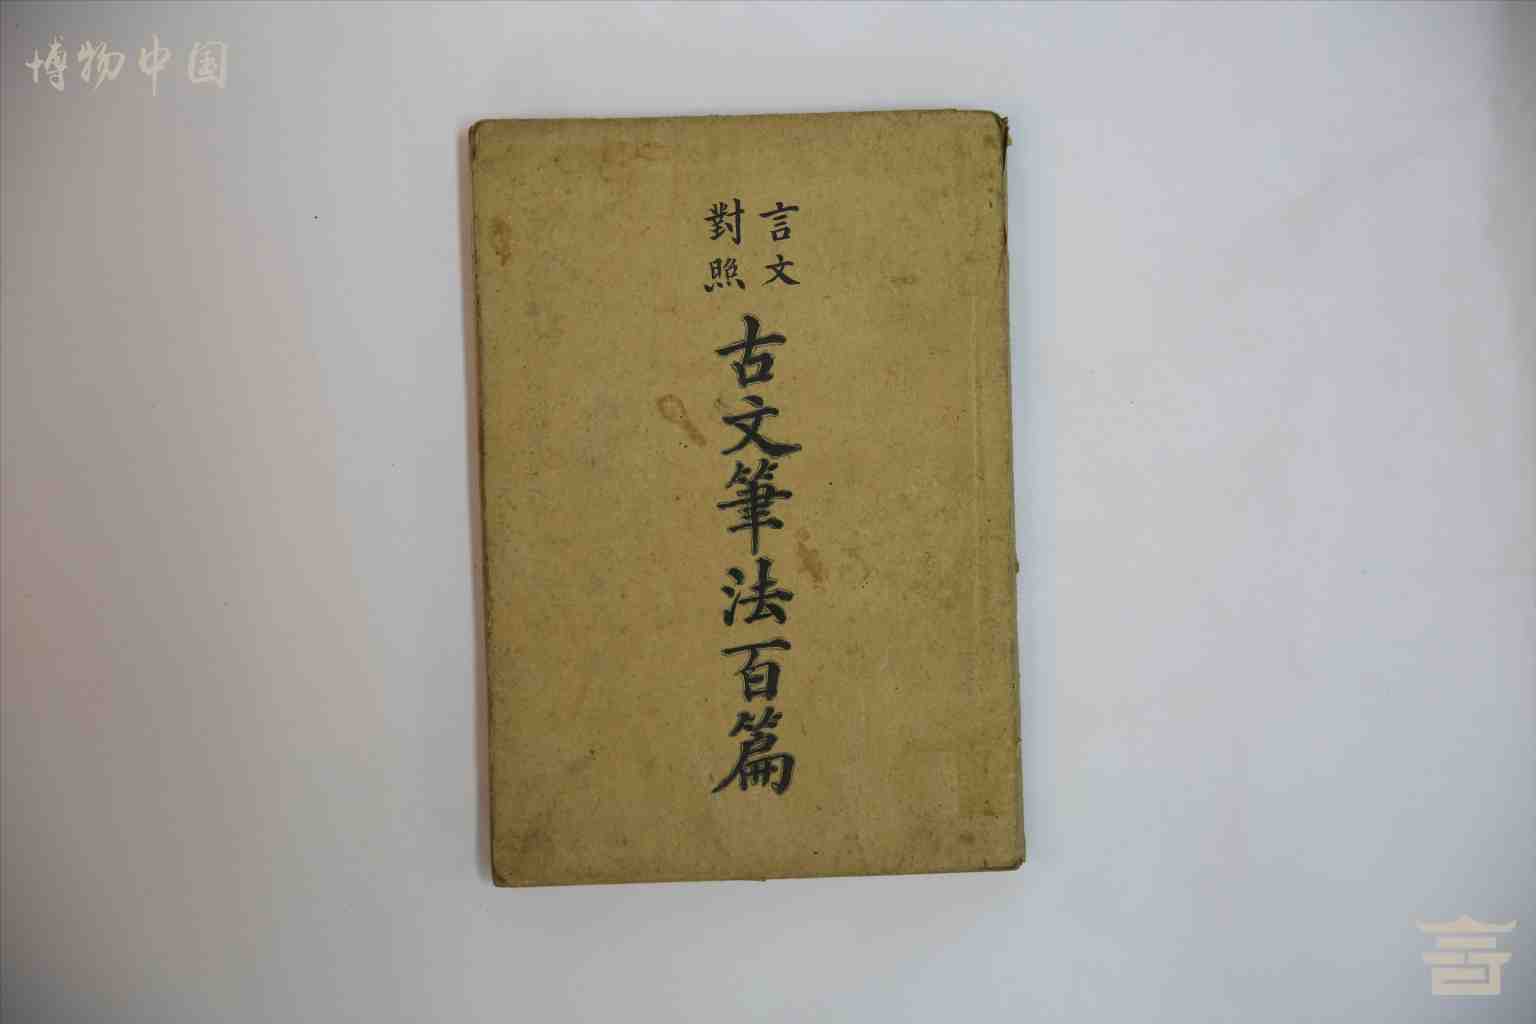 博物中国
言文
對照
古文筆法百篇